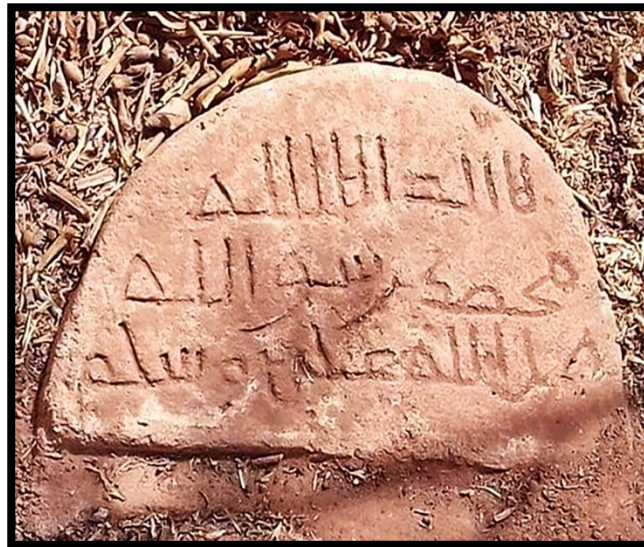 لا اله الا الله
محمد رسول الله
صلى الله عليه وسلم